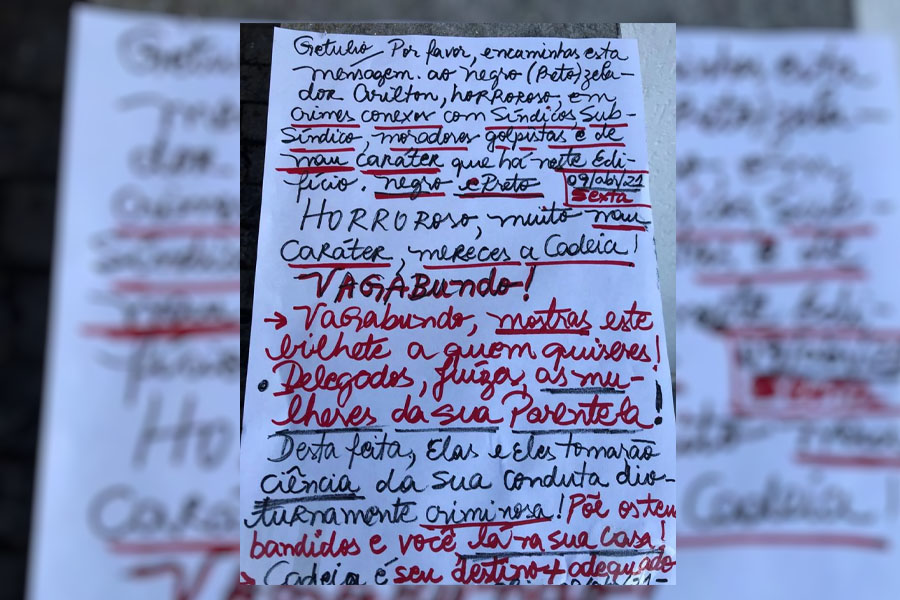 Getulio, Por favor, encaminhas esta
mensagem. ao negro (Preto) zela-
dor Arilton, horroroso, em
crimes conexos com Síndicos, Sub-
Síndico, moradores golpistas e de
mau caráter que há neste Edi-
fício. negro e Preto
09/04/21
Sexta
HORROROSO, muito mau
caráter, mereces a Cadeia!
VAGABundo!
→ Vagabundo, mostras este
bilhete a quem quiseres!
• Delegados, juíza, as mu-
lheres da sua Parentela!
Desta feita, Elas e Eles tomarão
ciência da sua conduta diu-
turnamente criminosa! Põe os teu
bandidos e você lá na sua casa!
Cadeia é seu destino + adequado